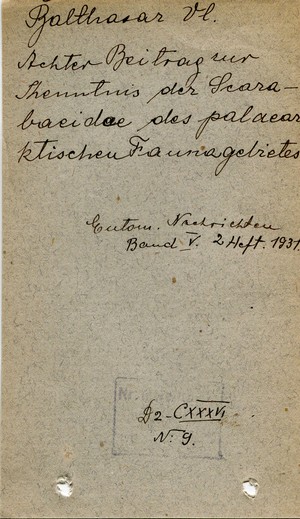 Balthasar Vl.
Achter Beitrag zur
Kenntnis der Scara-
baeidae des palaear
ktischen Faunagebietes
Entom. Nachrichten
Band V. 2 Heft. 1931
D2-CXXXVI
N: 9.